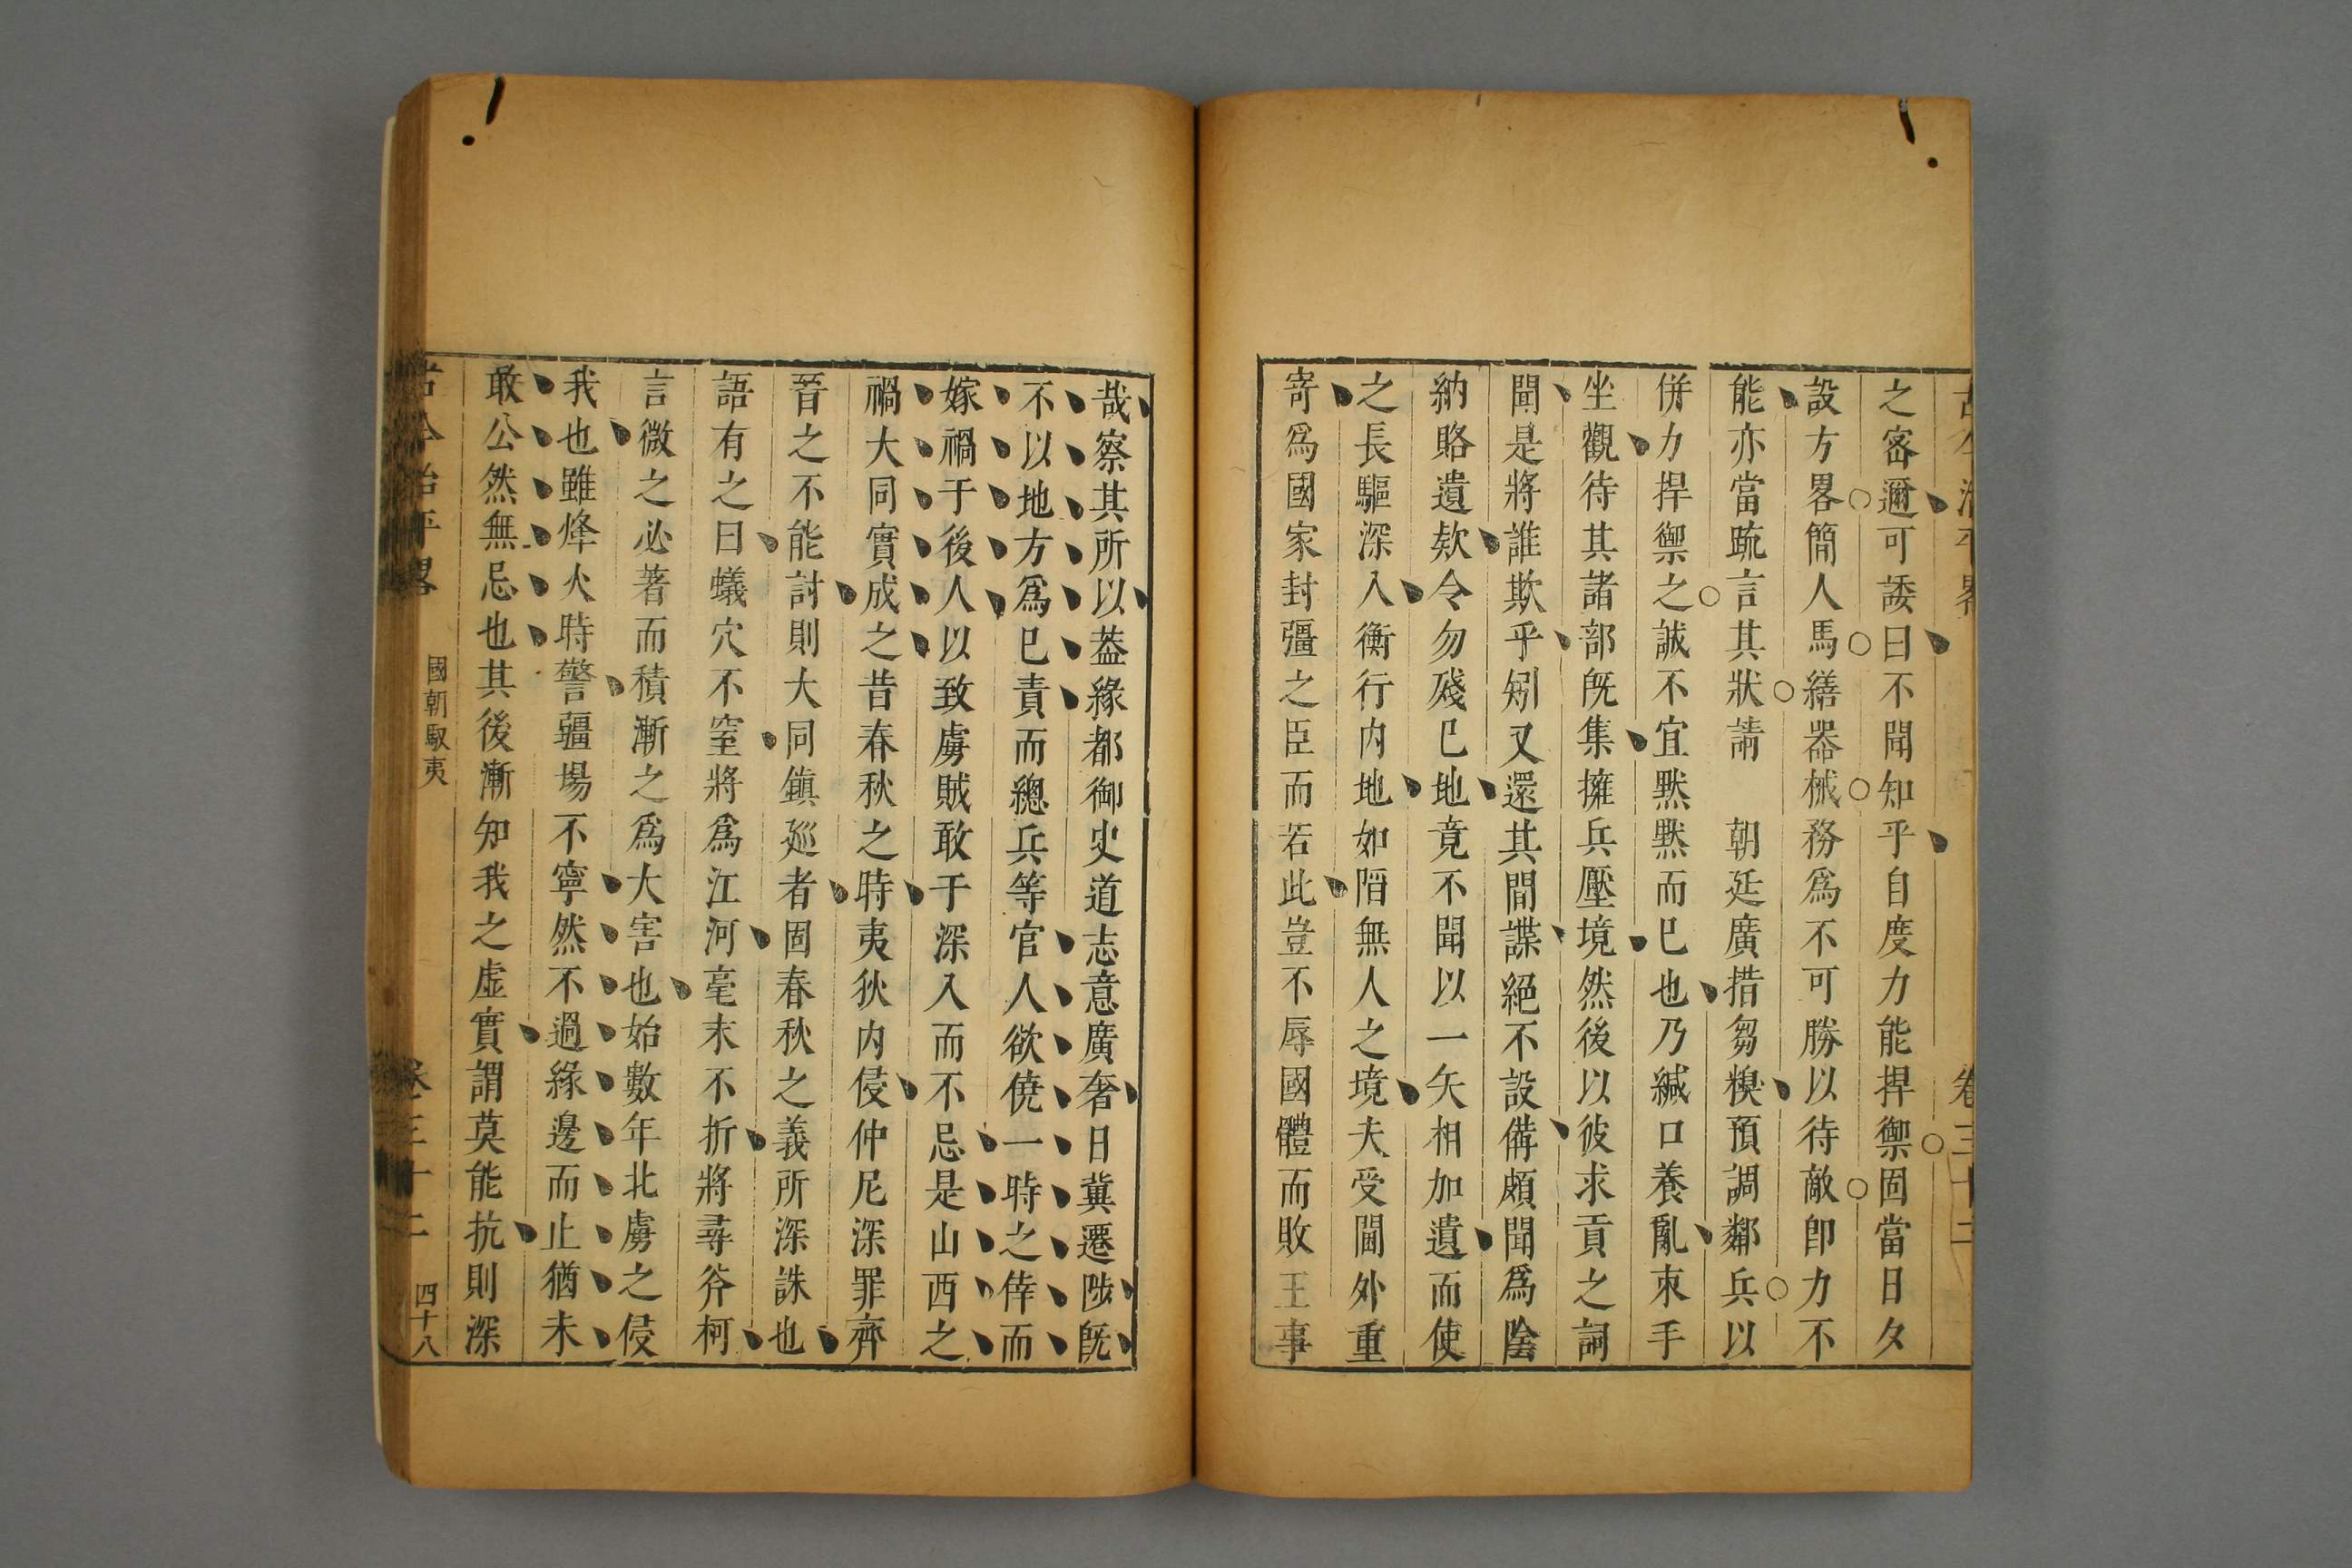 古今治平畧
卷三十二
之密邇可諉曰不聞知乎自度力能捍禦固當日夕
設方畧簡人馬繕器械務爲不可勝以待敵卽力不
能亦當疏言其狀請　朝廷廣措芻糗預調鄰兵以
併力捍禦之誠不宜黙黙而已也乃緘口養亂束手
坐觀待其諸部旣集擁兵壓境然後以彼求貢之詞
聞是將誰欺乎矧又還其間諜絕不設備頗聞爲陰
納賂遺欵令勿殘已地竟不聞以一矢相加遺而使
之長驅深入衡行内地如陷無人之境夫受閫外重
寄爲國家封彊之臣而若此豈不辱國體而敗王事
哉察其所以葢緣都御史道志意廣奢日冀遷陟旣
不以地方爲已責而總兵等官人欲僥一時之倖而
嫁禍于後人以致虜賊敢于深入而不忌是山西之
禍大同實成之昔春秋之時夷狄内侵仲尼深罪齊
晉之不能討則大同鎮廵者固春秋之義所深誅也
語有之曰蟻穴不窒將爲江河毫末不折將尋斧柯
言微之必著而積漸之爲大害也始數年北虜之侵
我也雖烽火時警疆場不寧然不過緣邊而止猶未
敢公然無忌也其後漸知我之虛實謂莫能抗則深
古今治平畧
國朝馭夷
卷三十二
四十八